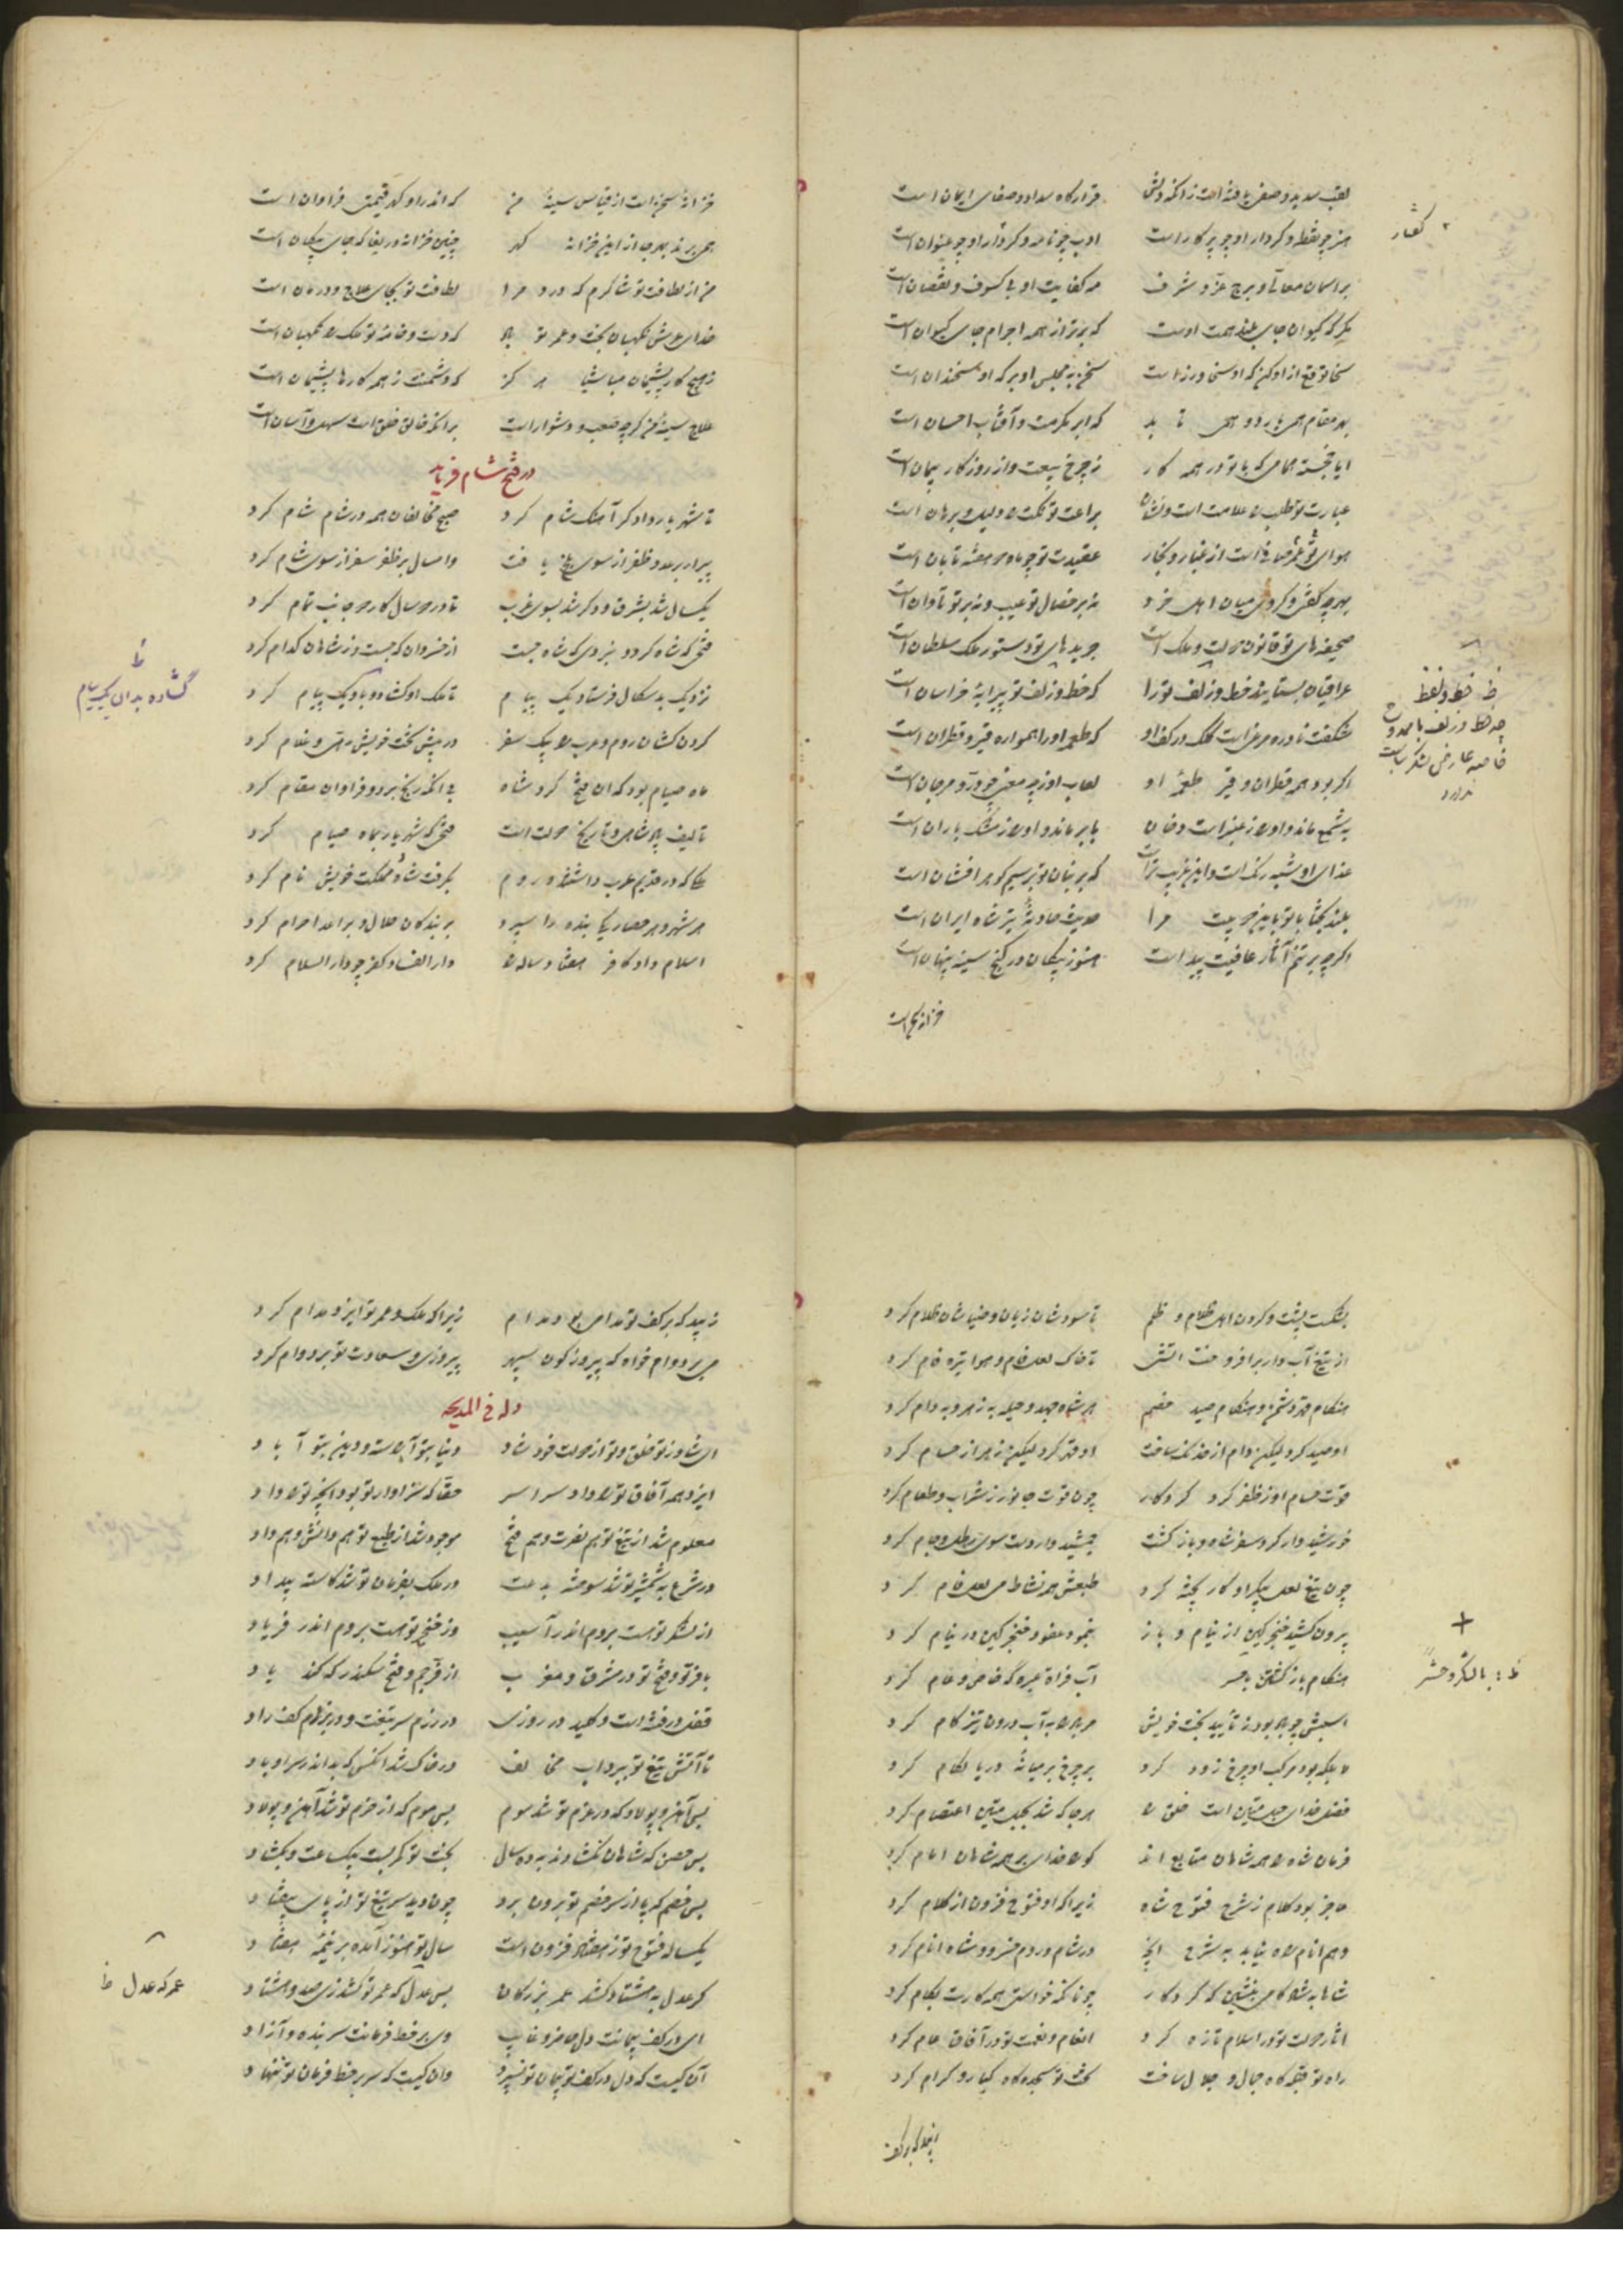 لقب سدید و صفی یافته است زانکه دلش قرارگاه سداد و صفای ایمان است
هنر چو نقطه و کردار او چو پرکار است ادب چو نامه و کردار او چو عنوان است
۲ گفتار
بر آسمان معالی و برج عز و شرف مه کفایت او بی کسوف و نقصان است
مگر که کیوان جای بلند همت اوست که برتر از همه اجرام جای کیوان است
سخا توقع از او کن که او سخا ورز است سخن به مجلس او بر که او سخندان است
بهر مقام همی بارد و همی تابد که ابر مکرمت و آفتاب احسان است
ایا خجسته همامی که با تو در همه کار ز چرخ بیعت و از روزگار پیمان است
عبارت تو طلب را علامت است و نشان براعت تو نکت را دلیل و برهان است
هوای تو صافی است از غبار و بخار عقیدت تو چو ماه دو هفته تابان است
بهرچه گفتی و کردی میان اهل خرد نه بر خصال تو عیب و نه بر تو تاوان است
صحیفه های تو قانون دولت و ملک است جریده های تو دستور ملک سلطان است
عراقیان بستایند خط و زلف تو را که خط و زلف تو پیرایه خراسان است
ظ خط و لفظ
چه خط و زلف با ممدوح
شگفت نادره مرغی است کلک در کف او که طعمه او را همواره قیر و قطران است
اگر بود همه قطران و قیر طعمه او لعاب او ز چه معنی چو در و مرجان است
به شمع ماند و او را ز عنبر است دخان بابر ماند و او را ز مشک باران است
غذای او شبه رنگ است و این غریب تر است که بر بنان تو بر سیم گوهر افشان است
بلند بختا با تو بدین دو بیت مرا حدیث حادثه تیر شاه ایران است
اگرچه بر تنم آثار عافیت پیداست هنوز پیکان در کنج سینه پنهان است
خزانه سخن است

خزانه سخن است از قیاس سینه من که اندر او گهر قیمتی فراوان است
همی برند بهر جا از این خزانه گهر چنین خزانه دریغا که جای پیکان است
من از لطافت تو شاکرم که درد مرا لطافت تو بجای علاج و درمان است
خدای عرش نگهبان بخت و عمر تو باد که دست و خامه تو ملک را نگهبان است
ز هیچ کار پشیمان مباشیا هرگز که دشمنت ز همه کارها پشیمان است
علاج سینه من گرچه صعب و دشوار است بر آنکه خالق خلق است سهل و آسان است
در فتح شام فرماید
تا شهریار دادگر آهنگ شام کرد صبح مخالفان همه در شام شام کرد
پیرار بر عدو ظفر از سوی بلخ یافت وامسال بر ظفر سفر از سوی شام کرد
یکسال شد بشرق و دگر شد بسوی غرب تا در دو سال کار دو جانب تمام کرد
فتحی که شاه کرد و نبردی که شاه جست از خسروان که جست و ز شاهان کدام کرد
نزدیک بدسگال فرستاد یک پیام تا ملک او گشاده بدان یک پیام کرد
ظ
گشاده بدان یک پیام
گردن کشان روم و عرب را به یک سفر در پیش تخت خویش رهی و غلام کرد
ماه صیام بود که آن فتح کرد شاه بی آنکه رنج برد و فراوان مقام کرد
تالیف پادشاهی و تاریخ دولت است فتحی که شهریار بماه صیام کرد
ملکی که در قدیم عرب داشتند و روم بگرفت شاه و مملکت خویش نام کرد
هر شهر و هر حصار یکی بنده را سپرد بر بندگان حلال و بر اعدا حرام کرد
اسلام داد کافر هفتاد ساله را دار الفساد کفر چو دار السلام کرد

بشکست پشت و گردن اهل ظلام و ظلم تا سودشان زیان و ضیاشان ظلام کرد
از تیغ آبدار برافروخت آتش تا خاک لعل فام و هوا تیره فام کرد
هنگام قهر دشمن و هنگام صید خصم هر شاه جهد و حیله به زهر و به دام کرد
او صید کرد لیکن دام از خدنگ ساخت او قهر کرد لیکن زهر از حسام کرد
قوت حسام او ز ظفر کرد کردگار چون قوت جانور ز شراب و طعام کرد
خورشید وار کرد سفر شاه و بازگشت جمشید وار دست سوی رطل و جام کرد
چون تیغ لعل پیکر او کار پخته کرد طبعش همه نشاط می لعل فام کرد
بیرون کشید خنجر کین از نیام و باز بنمود عفو و خنجر کین در نیام کرد
هنگام بازگشتن آب فراة عبره گه خاص و عام کرد
+
ظ : با لشکر و حشر
اسبش چو باد بود ز تأیید بخت خویش مر باد را به آب درون تیز گام کرد
لا بلکه بود مرکب او چرخ زود گرد بر چرخ بر میانه دریا لگام کرد
فضل خدای حبل متین است خلق را هر جا که شد بحبل متین اعتصام کرد
فرمان شاه را همه شاهان متابع اند کو را خدای بر همه شاهان امام کرد
عاجز بود کلام ز شرح فتوح شاه زیرا که او فتوح فزون از کلام کرد
وهم انام راه نیابد به شرح آنچ در شام و روم خسرو و شاه انام کرد
شاها به شادکامی بنشین که کردگار چونانکه خواستی همه کارت بکام کرد
آثار دولت تو در اسلام تازه کرد انعام و نعمت تو در آفاق عام کرد
راه تو قبله گاه جمال و جلال ساخت تخت تو سجده گاه کبار و کرام کرد
زیبد که بر کف

زیبد که بر کف تو مدامی بود مدام زیرا که ملک و عمر تو ایزد مدام کرد
می بر دوام خواه که پیروزگون سپهر پیروزی و سعادت تو بر دوام کرد
وله فی المدیحه
ای شاد ز تو خلق و تو از دولت خود شاد دنیا بتو آراسته و دین بتو آباد
ایزد همه آفاق تو را داد سراسر حقا که سزاوار تو بود آنچه تو را داد
معلوم شد از تیغ تو هم نصرت و هم فتح موجود شد از طبع تو هم دانش و هم داد
در شرع به شمشیر تو شد سوخته بدعت در ملک بفرمان تو شد کاسته بیداد
از لشکر تو هست بروم اندر آسیب وز خنجر تو هست بروم اندر فریاد
با فر تو و فتح تو در مشرق و مغرب از فر جم و فتح سکندر که کند یاد
قفل در فتنه است و کلید در روزی در رزم سر تیغت و در بزم کف راد
تا آتش تیغ تو ببرد آب مخالف در خاک شد آنکس که بد اندر سر او باد
بس آهن و پولاد که در عزم تو شد موم بس موم که از حزم تو شد آهن و پولاد
بس حصن که شاهان نگشادند به ده سال بخت تو کمر بست بیک ساعت و بگشاد
بس خصم که پا از سر خصم تو برون برد چون دید سر تیغ تو از پای بیفتاد
یکساله فتوح تو ز هفتاد فزون است سال تو هنوز آمده بر نیمه هفتاد
گر عدل به هشتاد کشد عمر بزرگان بس عدل که عمر تو کشد زی صد و هشتاد
عمر که عدل ظ
ای در کف پیمانت دل حاضر و غایب وی بر خط فرمانت سر بنده و آزاد
آن کیست که دل در کف پیمان تو نسپرد وان کیست که سر بر خط فرمان تو ننهاد